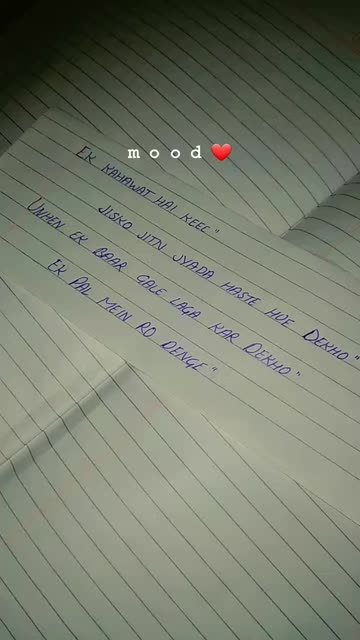 mood❤️
EK KAHAWAT HAI KEEC"
JISKO JITN JYADA HASTE HUE DEKHO"
UNHEN EK BAAR GALE LAGA KAR DEKHO"
EK PAL MEIN RO DENGE"